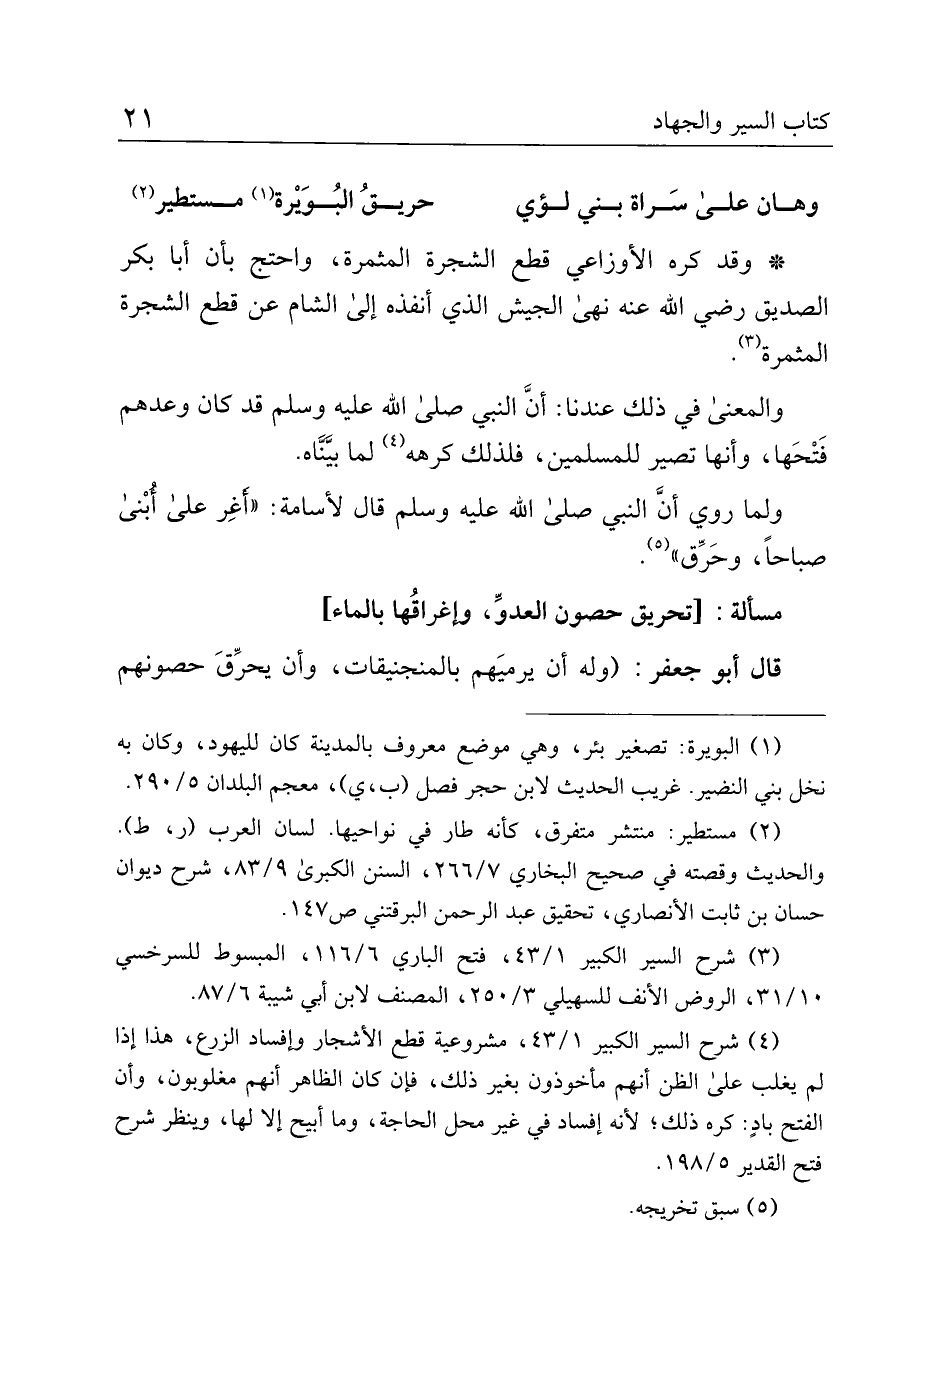 كتاب السير والجهاد ٢١
وهـان علـىٰ سَراة بـني لـؤي حريـقُ البُـوَيْرة(١) مـستطير(٢)
* وقد كره الأوزاعي قطع الشجرة المثمرة، واحتج بأن أبا بكر
الصديق رضي الله عنه نهىٰ الجيش الذي أنفذه إلىٰ الشام عن قطع الشجرة
المثمرة(٣).
والمعنىٰ في ذلك عندنا: أنَّ النبي صلىٰ الله عليه وسلم قد كان وعدهم
فَتْحَها، وأنها تصير للمسلمين، فلذلك كرهه(٤) لما بيَّنَّاه.
ولما روي أنَّ النبي صلىٰ الله عليه وسلم قال لأسامة: «أَغِر علىٰ أُبْنىٰ
صباحاً، وحَرِّق»(٥).
مسألة : [تحريق حصون العدوِّ، وإغراقُها بالماء]
قال أبو جعفر : (وله أن يرميَهم بالمنجنيقات، وأن يحرِّقَ حصونهم
(١) البويرة: تصغير بئر، وهي موضع معروف بالمدينة كان لليهود، وكان به
نخل بني النضير. غريب الحديث لابن حجر فصل (ب،ي)، معجم البلدان ٢٩٠/٥.
(٢) مستطير: منتشر متفرق، كأنه طار في نواحيها. لسان العرب (ر، ط).
والحديث وقصته في صحيح البخاري ٢٦٦/٧، السنن الكبرىٰ ٨٣/٩، شرح ديوان
حسان بن ثابت الأنصاري، تحقيق عبد الرحمن البرقتني ص١٤٧.
(٣) شرح السير الكبير ٤٣/١، فتح الباري ١١٦/٦، المبسوط للسرخسي
٣١/١٠، الروض الأنف للسهيلي ٢٥٠/٣، المصنف لابن أبي شيبة ٨٧/٦.
(٤) شرح السير الكبير ٤٣/١، مشروعية قطع الأشجار وإفساد الزرع، هذا إذا
لم يغلب علىٰ الظن أنهم مأخوذون بغير ذلك، فإن كان الظاهر أنهم مغلوبون، وأن
الفتح بادٍ: كره ذلك؛ لأنه إفساد في غير محل الحاجة، وما أبيح إلا لها، وينظر شرح
فتح القدير ١٩٨/٥.
(٥) سبق تخريجه.